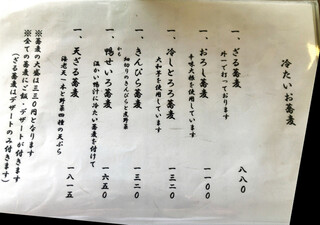 冷たいお蕎麦
一、ざる蕎麦 八八〇
外一で打っております
一、おろし蕎麦 一一〇〇
辛味大根を使用しています
一、冷しとろろ蕎麦 一三二〇
大和芋を使用しています
一、きんぴら蕎麦 一三二〇
細切りのきんぴらと炙野菜
一、鴨せいろ蕎麦 一六五〇
温かい鴨汁に冷たい蕎麦を付けて
一、天ざる蕎麦 一八一五
海老天一本と野菜四種の天ぷら
※蕎麦の大盛は三三〇円となります
※全ての蕎麦にご飯・デザートが付きます
（ざる蕎麦はデザートのみ付きます）